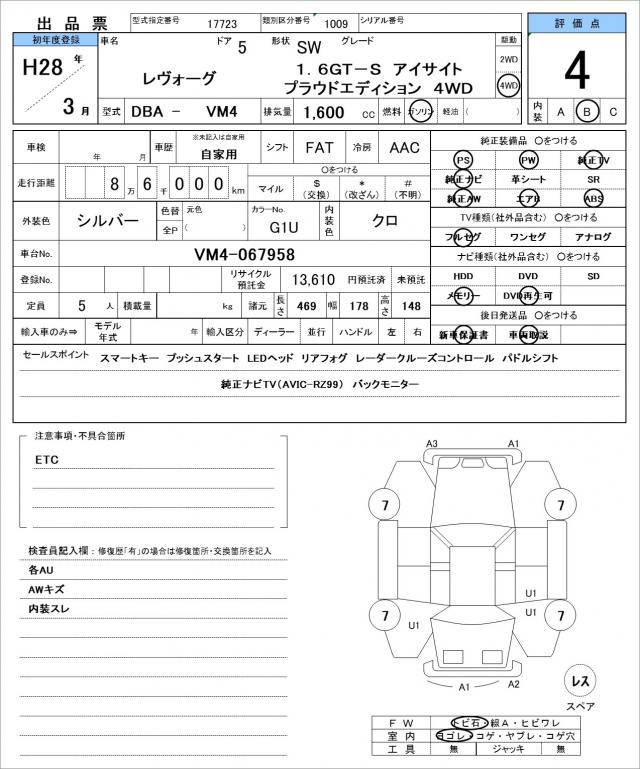 出品票 型式指定番号 17723 類別区分番号 1009 シリアル番号
評価点
初年度登録 車名 ドア 5 形状 SW グレード 駆動
H28 年 3 月
レヴォーグ
1.6GT-S アイサイト
プラウドエディション 4WD
2WD
4WD
4
型式 DBA - VM4 排気量 1,600 cc 燃料 ガソリン 軽油 ( )
内装 A B C
車検 年 月 車歴 ※未記入は自家用 自家用 シフト FAT 冷房 AAC
走行距離 8 万 6 千 0 0 0 km
○をつける
マイル $ (交換) * (改ざん) # (不明)
外装色 シルバー 色替 全P 元色 ( カラーNo. G1U 内装色 クロ
車台No. VM4-067958
登録No. リサイクル預託金 13,610 円預託済 未預託
定員 5 人 積載量 kg 諸元 長さ 469 幅 178 高さ 148
輸入車のみ⇒ モデル年式 年 輸入区分 ディーラー 並行 ハンドル 左 右
純正装備品 ○をつける
PS PW 純正TV
純正ナビ 革シート SR
純正AW エアB ABS
TV種類(社外品含む) ○をつける
フルセグ ワンセグ アナログ
ナビ種類(社外品含む) ○をつける
HDD DVD SD
メモリー DVD再生可
後日発送品 ○をつける
新車保証書 車両取説
セールスポイント スマートキー プッシュスタート LEDヘッド リアフォグ レーダークルーズコントロール パドルシフト
純正ナビTV(AVIC-RZ99) バックモニター
注意事項・不具合箇所
ETC
検査員記入欄:修復歴「有」の場合は修復箇所・交換箇所を記入
各AU
AWキズ
内装スレ
A3 A1
7 7
U1
7 U1 U1 7
A1 A2
レス
スペア
FW トビ石・線A・ヒビワレ
室内 ヨゴレ・コゲ・ヤブレ・コゲ穴
工具 無 ジャッキ 無